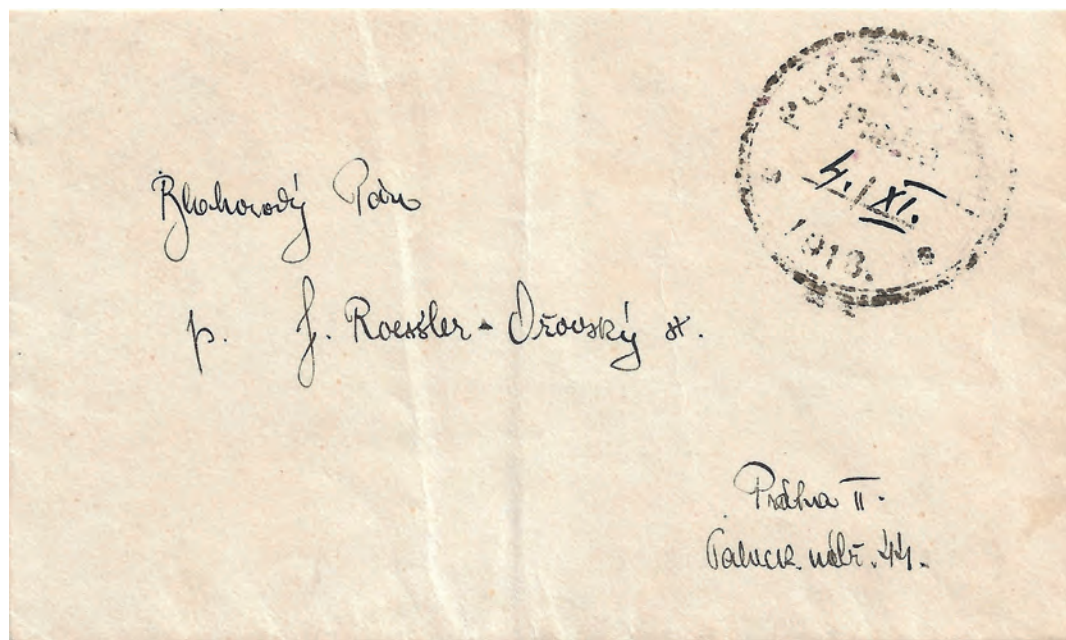 POŠTA
Praha
4./XI.
1918.
Blahorodý Pán
p. J. Roessler-Ořovský st.
Praha II.
Palack. nábř. 44.